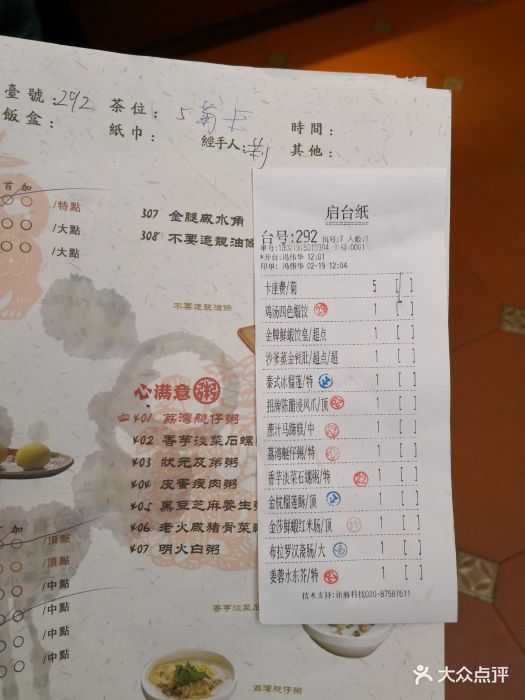 臺號:292 茶位: 5菊 卡
飯盒: 紙巾: 時間:
經手人: 其他:
首 加
/特點
/大點
/大點
307 金腿咸水角
308 不要追靚油條
不要追靚油條
心满意粥
401 荔灣艇仔粥
402 香芋淡菜石螺
403 狀元及弟粥
404 皮蛋瘦肉粥
405 黑豆芝麻養生
406 老火咸豬骨菜
407 明火白粥
/頂點
/頂點
/中點
/中點
/中點
香芋淡菜石
荔湾艇仔粥
启台纸
台号:292 机号:7 人数:
*开台:冯伟华 12:01
印单: 冯伟华 02-19 12:04
卡座费/菊 5 [ ]
鸡汤四色蝦饺 1 [ ]
金牌鲜蝦饺皇/超点 1 [ ]
沙爹蒸金钱肚/超点/超 1 [ ]
泰式冰榴莲/特 1 [ ]
招牌陈醋浸凤爪/顶 1 [ ]
蔗汁马蹄糕/中 1 [ ]
荔湾艇仔粥/特 1 [ ]
香芋淡菜石螺粥/特 22 1 [ ]
金枕榴莲酥/顶 1 [ ]
金莎鲜蝦红米肠/顶 1 [ ]
布拉罗汉斋肠/大 1 [ ]
姜蓉水东芥/特 1 [ ]
技术支持:讯雅科技020-87587511
大众点评